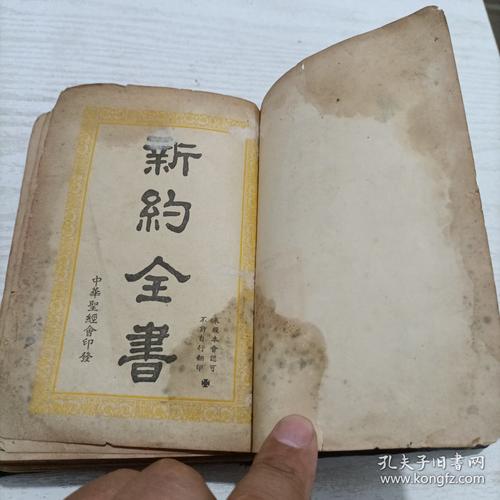 新約全書
未經本會認可
不許自行翻印
中華聖經會印發
孔夫子旧书网
www.kongfz.com